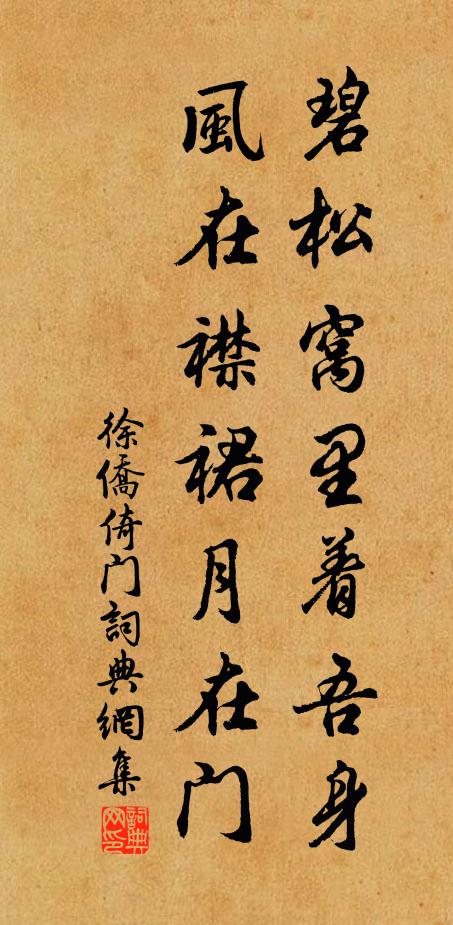 碧松窩里着吾身
風在襟裙月在門
徐僑倚门詞典網集
詞典网印